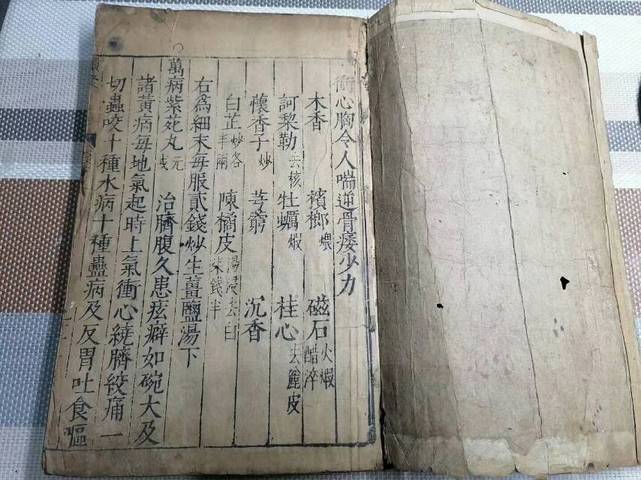 衝心胸令人喘逆骨痿少力
木香 檳榔煨 磁石火煅醋淬
訶棃勒去核 牡蠣煅 桂心去麄皮
懷香子炒 芎藭 沉香
白芷炒各半兩 陳橘皮湯浸去白柒錢半
右為細末每服貳錢炒生薑鹽湯下
萬病紫菀丸 治臍腹久患痃癖如碗大及
諸黃病每地氣起時上氣衝心繞臍絞痛一
切蟲咬十種水病十種蠱病及反胃吐食嘔